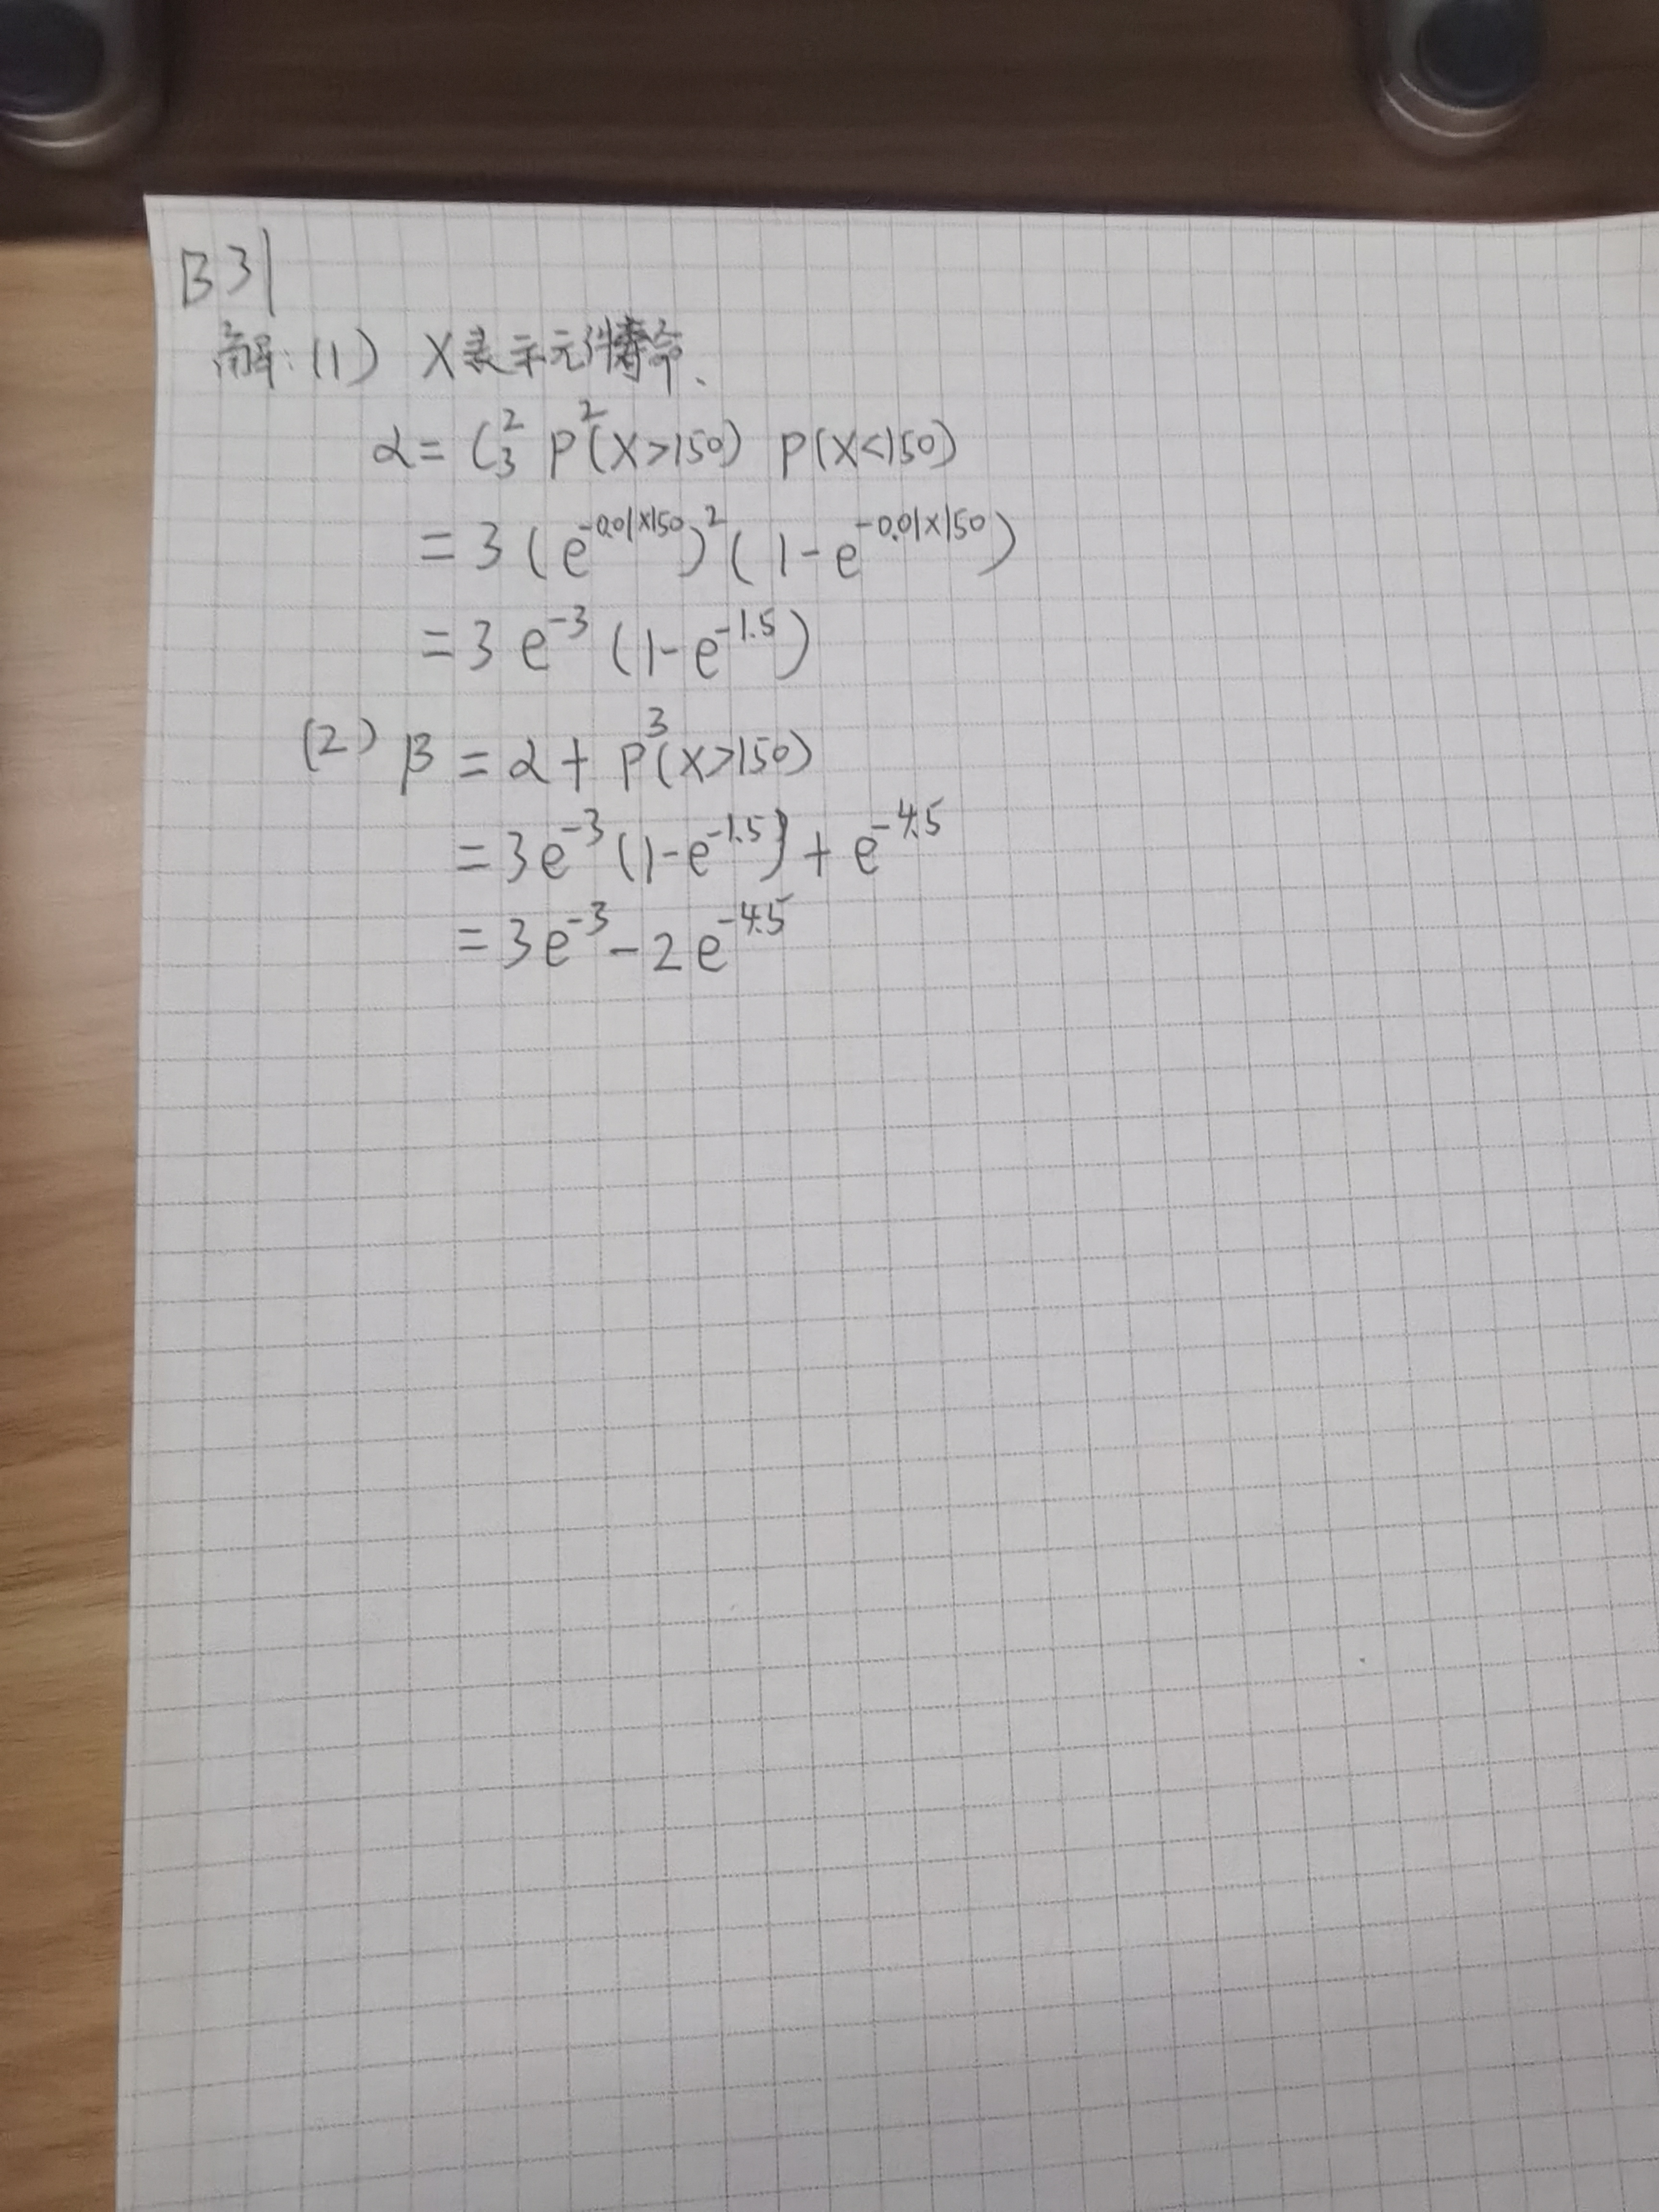 B31
解:(1) X表示元件寿命.
α = C₃² P²(X>150) P(X<150)
= 3 (e^{-0.01×150})² (1-e^{-0.01×150})
= 3 e^{-3} (1-e^{-1.5})
(2) β = α + P³(X>150)
= 3e^{-3} (1-e^{-1.5}) + e^{-4.5}
= 3e^{-3} - 2e^{-4.5}